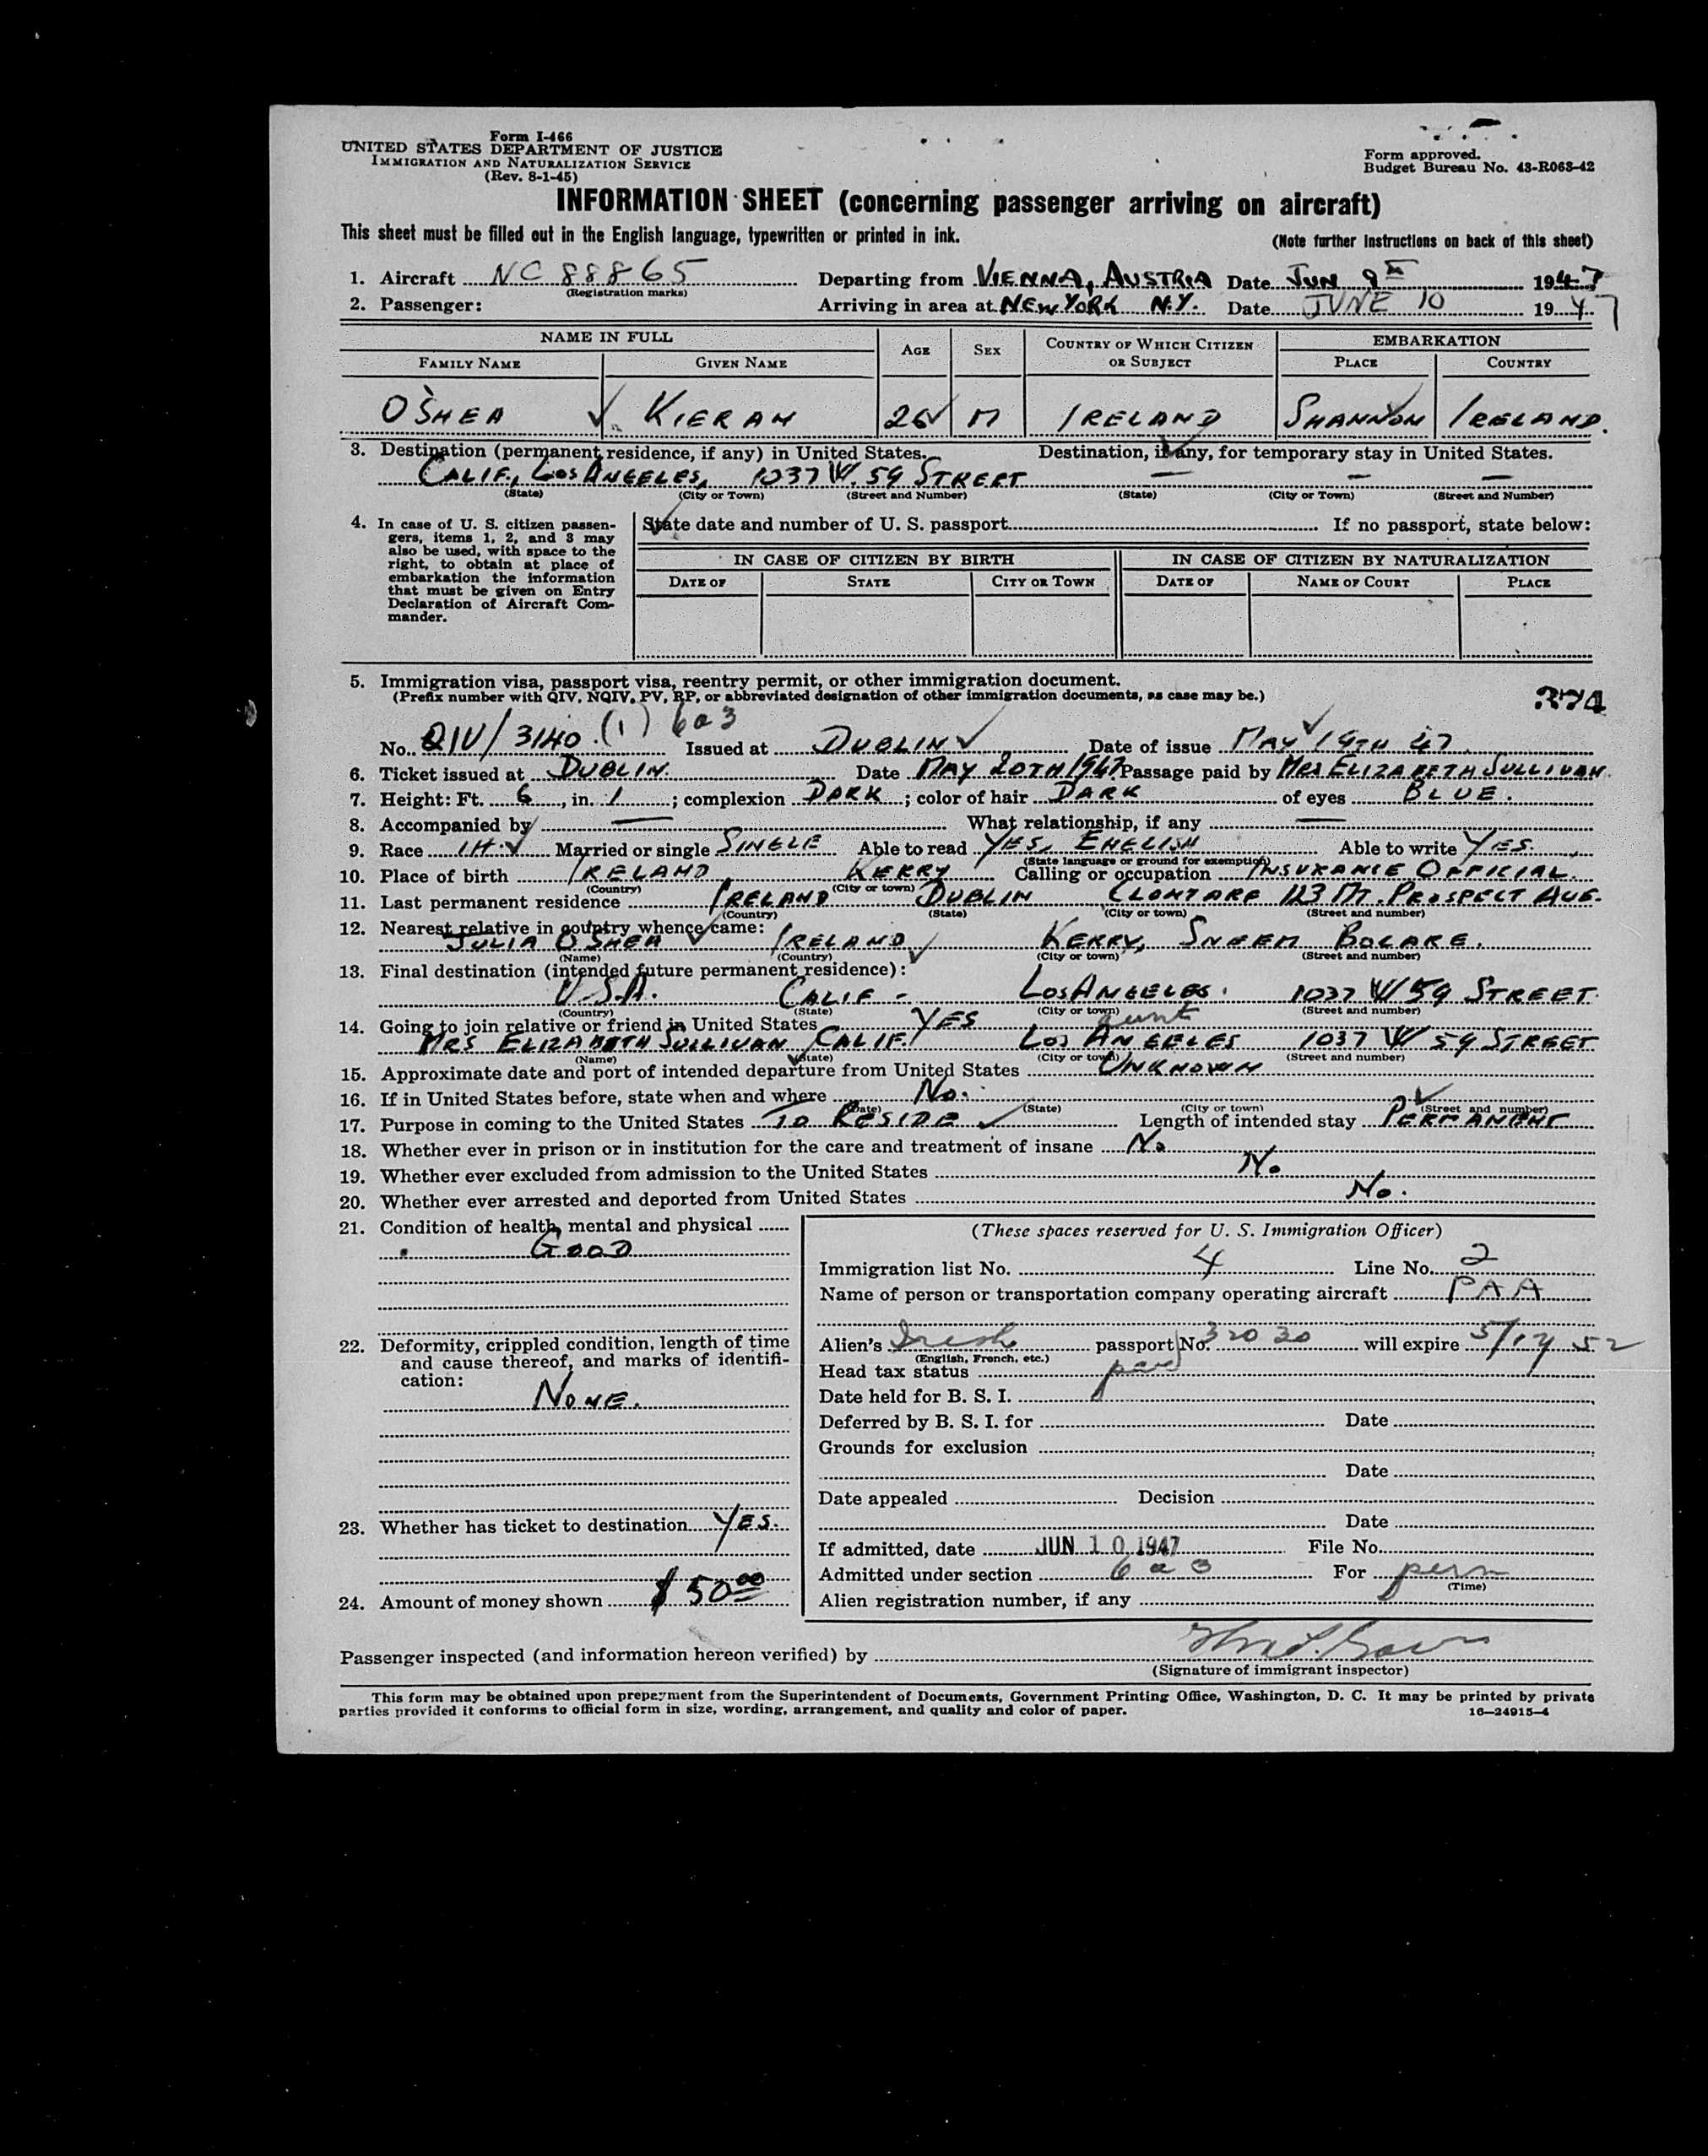 Form I-466
UNITED STATES DEPARTMENT OF JUSTICE
IMMIGRATION AND NATURALIZATION SERVICE
(Rev. 8-1-45)
Form approved.
Budget Bureau No. 43-R063-42
INFORMATION SHEET (concerning passenger arriving on aircraft)
This sheet must be filled out in the English language, typewritten or printed in ink. (Note further instructions on back of this sheet)
1. Aircraft NC 88865 Departing from VIENNA, AUSTRIA Date JUN 9TH 1947
(Registration marks)
2. Passenger: Arriving in area at NEW YORK N.Y. Date JUNE 10 1947
NAME IN FULL AGE SEX COUNTRY OF WHICH CITIZEN OR SUBJECT EMBARKATION
FAMILY NAME GIVEN NAME PLACE COUNTRY
O'SHEA KIERAN 26 M IRELAND SHANNON IRELAND.
3. Destination (permanent residence, if any) in United States. Destination, if any, for temporary stay in United States.
CALIF., LOS ANGELES, 1037 W. 59 STREET — — —
(State) (City or Town) (Street and Number) (State) (City or Town) (Street and Number)
4. In case of U. S. citizen passen-
gers, items 1, 2, and 3 may
also be used, with space to the
right, to obtain at place of
embarkation the information
that must be given on Entry
Declaration of Aircraft Com-
mander.
State date and number of U. S. passport If no passport, state below:
IN CASE OF CITIZEN BY BIRTH IN CASE OF CITIZEN BY NATURALIZATION
DATE OF STATE CITY OR TOWN DATE OF NAME OF COURT PLACE
5. Immigration visa, passport visa, reentry permit, or other immigration document.
(Prefix number with QIV, NQIV, PV, RP, or abbreviated designation of other immigration documents, as case may be.)
374
No. QIV/3140 (1) 6a3 Issued at DUBLIN Date of issue MAY 19TH 47
6. Ticket issued at DUBLIN. Date MAY 20TH 1947 Passage paid by MRS ELIZABETH SULLIVAN.
7. Height: Ft. 6, in. 1; complexion DARK; color of hair DARK of eyes BLUE.
8. Accompanied by — What relationship, if any —
9. Race IH. Married or single SINGLE Able to read YES, ENGLISH Able to write YES.
(State language or ground for exemption)
10. Place of birth IRELAND KERRY Calling or occupation INSURANCE OFFICIAL.
(Country) (City or town)
11. Last permanent residence IRELAND DUBLIN CLONTARF 123 MT. PROSPECT AVE.
(Country) (State) (City or town) (Street and number)
12. Nearest relative in country whence came:
JULIA O'SHEA IRELAND KERRY, SNEEM
(Name) (Country) (City or town) (Street and number)
13. Final destination (intended future permanent residence):
U.S.A. CALIF - LOS ANGELES. 1037 W 59 STREET.
(Country) (State) (City or town) (Street and number)
14. Going to join relative or friend in United States YES aunt
MRS ELIZABETH SULLIVAN CALIF. LOS ANGELES 1037 W 59 STREET
(Name) (State) (City or town) (Street and number)
15. Approximate date and port of intended departure from United States UNKNOWN
16. If in United States before, state when and where No.
(Date) (State) (City or town) (Street and number)
17. Purpose in coming to the United States TO RESIDE Length of intended stay PERMANENT
18. Whether ever in prison or in institution for the care and treatment of insane No
19. Whether ever excluded from admission to the United States No
20. Whether ever arrested and deported from United States No.
21. Condition of health, mental and physical
GOOD
22. Deformity, crippled condition, length of time
and cause thereof, and marks of identifi-
cation:
NONE.
23. Whether has ticket to destination YES.
24. Amount of money shown $ 50 00
(These spaces reserved for U. S. Immigration Officer)
Immigration list No. 4 Line No. 2
Name of person or transportation company operating aircraft PAA
Alien's Irish passport No. 32030 will expire 5/14 52
(English, French, etc.)
Head tax status paid
Date held for B. S. I.
Deferred by B. S. I. for Date
Grounds for exclusion
Date
Date appealed Decision
Date
If admitted, date JUN 10 1947 File No.
Admitted under section 6a3 For perm
(Time)
Alien registration number, if any
Passenger inspected (and information hereon verified) by
(Signature of immigrant inspector)
This form may be obtained upon prepayment from the Superintendent of Documents, Government Printing Office, Washington, D. C. It may be printed by private
parties provided it conforms to official form in size, wording, arrangement, and quality and color of paper. 16—24915-4